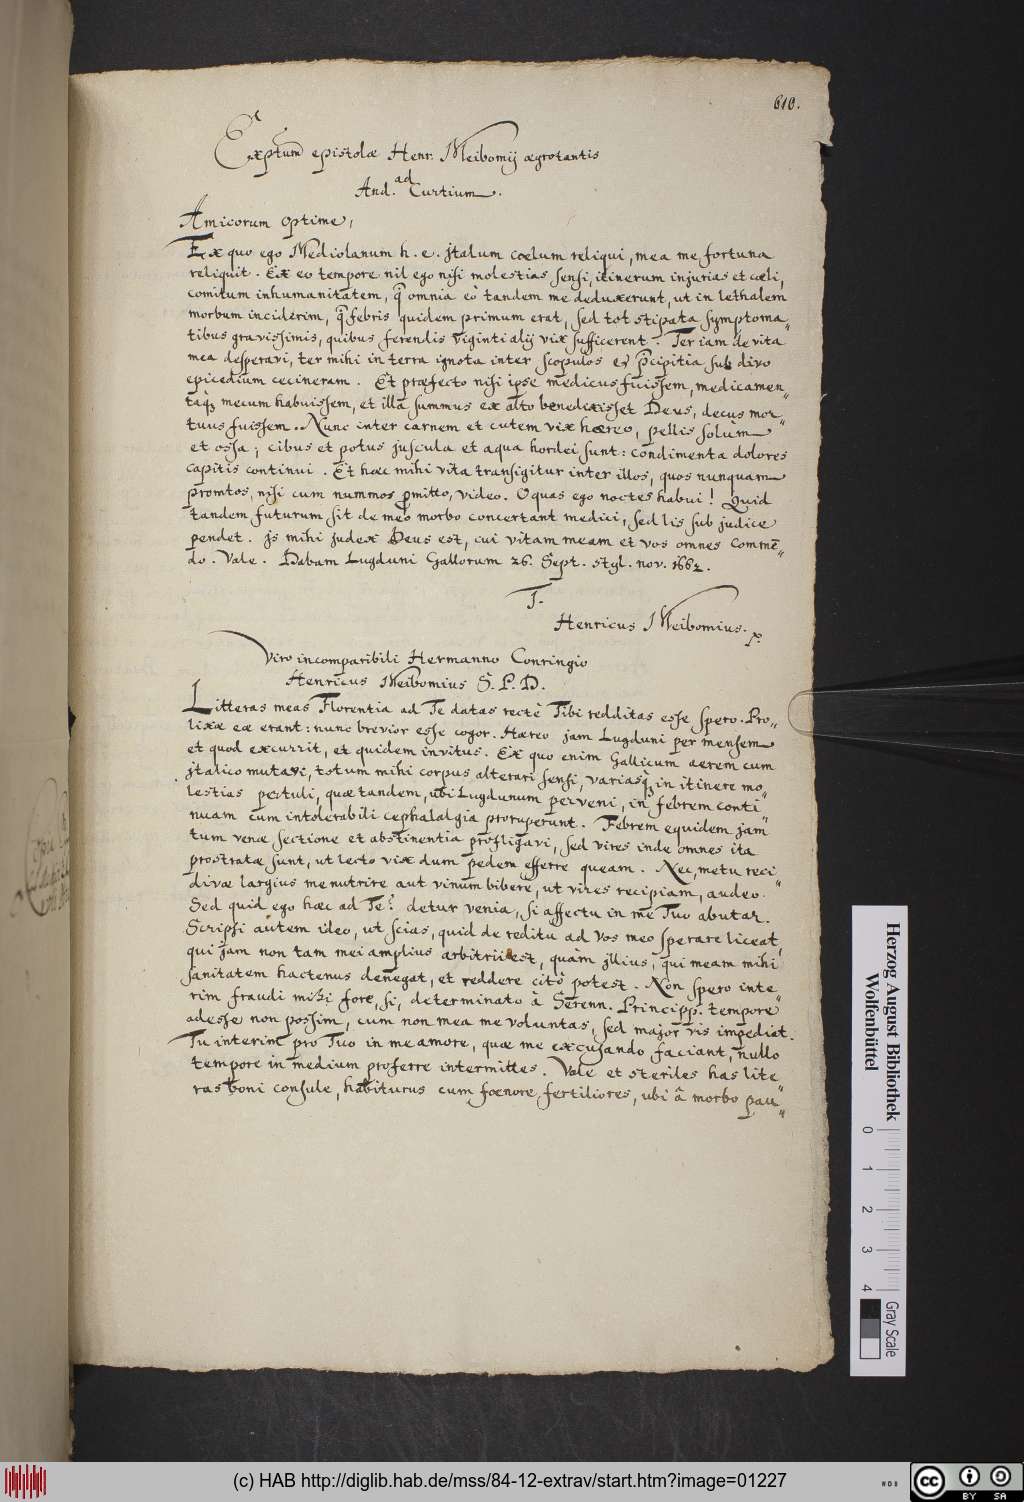 610.
Exptum epistolæ Henr. Meibomij ægrotantis
ad
And. Curtium.
Amicorum optime,
Ex quo ego Mediolanum h. e. jtalum cœlum reliqui, mea me fortuna
reliquit. Ex eo tempore nil ego nisi molestias sensi, itinerum injurias et cœli,
comitum inhumanitatem, q̃ omnia eò tandem me deduxerunt, ut in lethalem
morbum inciderim, q̃ febris quidem primum erat, sed tot stipata symptoma„
tibus gravissimis, quibus ferendis viginti alij vix sufficerent. Ter iam de vita
mea desperavi, ter mihi in terra ignota inter scopulos et p̃cipitia sub divo
epicedium cecineram. Et præfecto nisi ipse medicus fuissem, medicamen„
taq₃ mecum habuissem, et illa summus ex alto benedixisset Deus, decus mor„
tuus fuissem. Nunc inter carnem et cutem vix hæreo, pellis solùm
et ossa; cibus et potus juscula et aqua hordei sunt: condimenta dolores
capitis continui. Et hæc mihi vita transigitur inter illos, quos nunquam
promtos, nisi cum nummos promitto, video. O quas ego noctes habui! Quid
tandem futurum sit de meo morbo concertant medici, sed lis sub judice
pendet. js mihi judex Deus est, cui vitam meam et vos omnes commē„
do. Vale. Dabam Lugduni Gallorum 26. Sept. styl. nov. 1662.
T.
Henricus Meibomius.
Viro incomparibili Hermanno Conringio
Henricus Meibomius S. P. D.
Litteras meas Florentia ad Te datas rectè Tibi redditas esse spero. Pro„
lixæ eæ erant: nunc brevior esse cogor. Hæreo jam Lugduni per mensem
et quod excurrit, et quidem invitus. Ex quo enim Gallicum aerem cum
jtalico mutavi, totum mihi corpus alterari sensi, variasq₃ in itinere mo„
lestias pertuli, quæ tandem, ubi Lugdunum perveni, in febrem conti„
nuam cum intolerabili cephalalgia proruperunt. Febrem equidem jam
tum venæ sectione et abstinentia profligavi, sed vires inde omnes ita
prostratæ sunt, ut lecto vix dum pedem efferre queam. Nec, metu reci„
divæ largius me nutrire aut vinum bibere, ut vires recipiam, audeo.
Sed quid ego hæc ad Te? detur venia, si affectu in me Tuo abutar.
Scripsi autem ideo, ut scias, quid de reditu ad vos meo sperare liceat,
qui jam non tam mei amplius arbitrii est, quàm jllius, qui meam mihi
sanitatem hactenus denegat, et reddere citò potest. Non spero inte„
rim fraudi mihi fore, si, determinato à Serenn. Principp. tempore
adesse non possim, cum non mea me voluntas, sed major vis impediat.
Tu interim pro Tuo in me amore, quæ me excusando faciant, nullo
tempore in medium proferre intermittes. Vale et steriles has lite„
ras boni consule, habiturus cum fœnore fertiliores, ubi â morbo pau„
Herzog August Bibliothek
Wolfenbüttel
0 1 2 3 4
Gray Scale
(c) HAB http://diglib.hab.de/mss/84-12-extrav/start.htm?image=01227
cc
BY SA